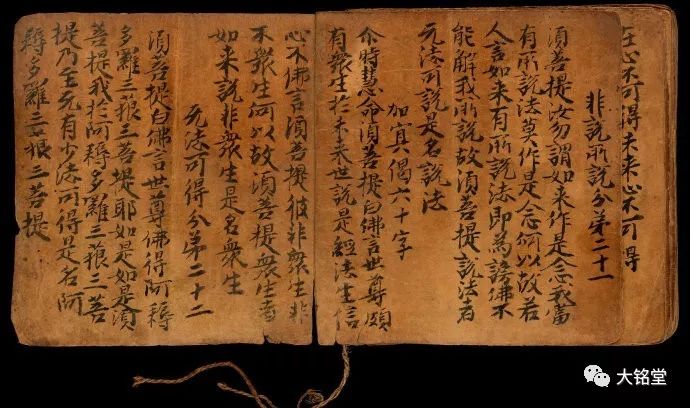 在心不可得未来心不可得
非說所說分第二十一
須菩提汝勿謂如来作是念我當
有所說法莫作是念何以故若
人言如来有所說法即為謗佛不
能解我所說故須菩提說法者
无法可說是名說法
加冥偈六十字
尒時慧命須菩提白佛言世尊頗
有衆生於未来世說是經法生信
心不佛言須菩提彼非衆生非
不衆生何以故須菩提衆生者
如来說非衆生是名衆生
无法可得分第二十二
須菩提白佛言世尊佛得阿耨
多羅三藐三菩提耶如是如是須
菩提我於阿耨多羅三藐三菩
提乃至无有少法可得是名阿
耨多羅三藐三菩提
大铭堂